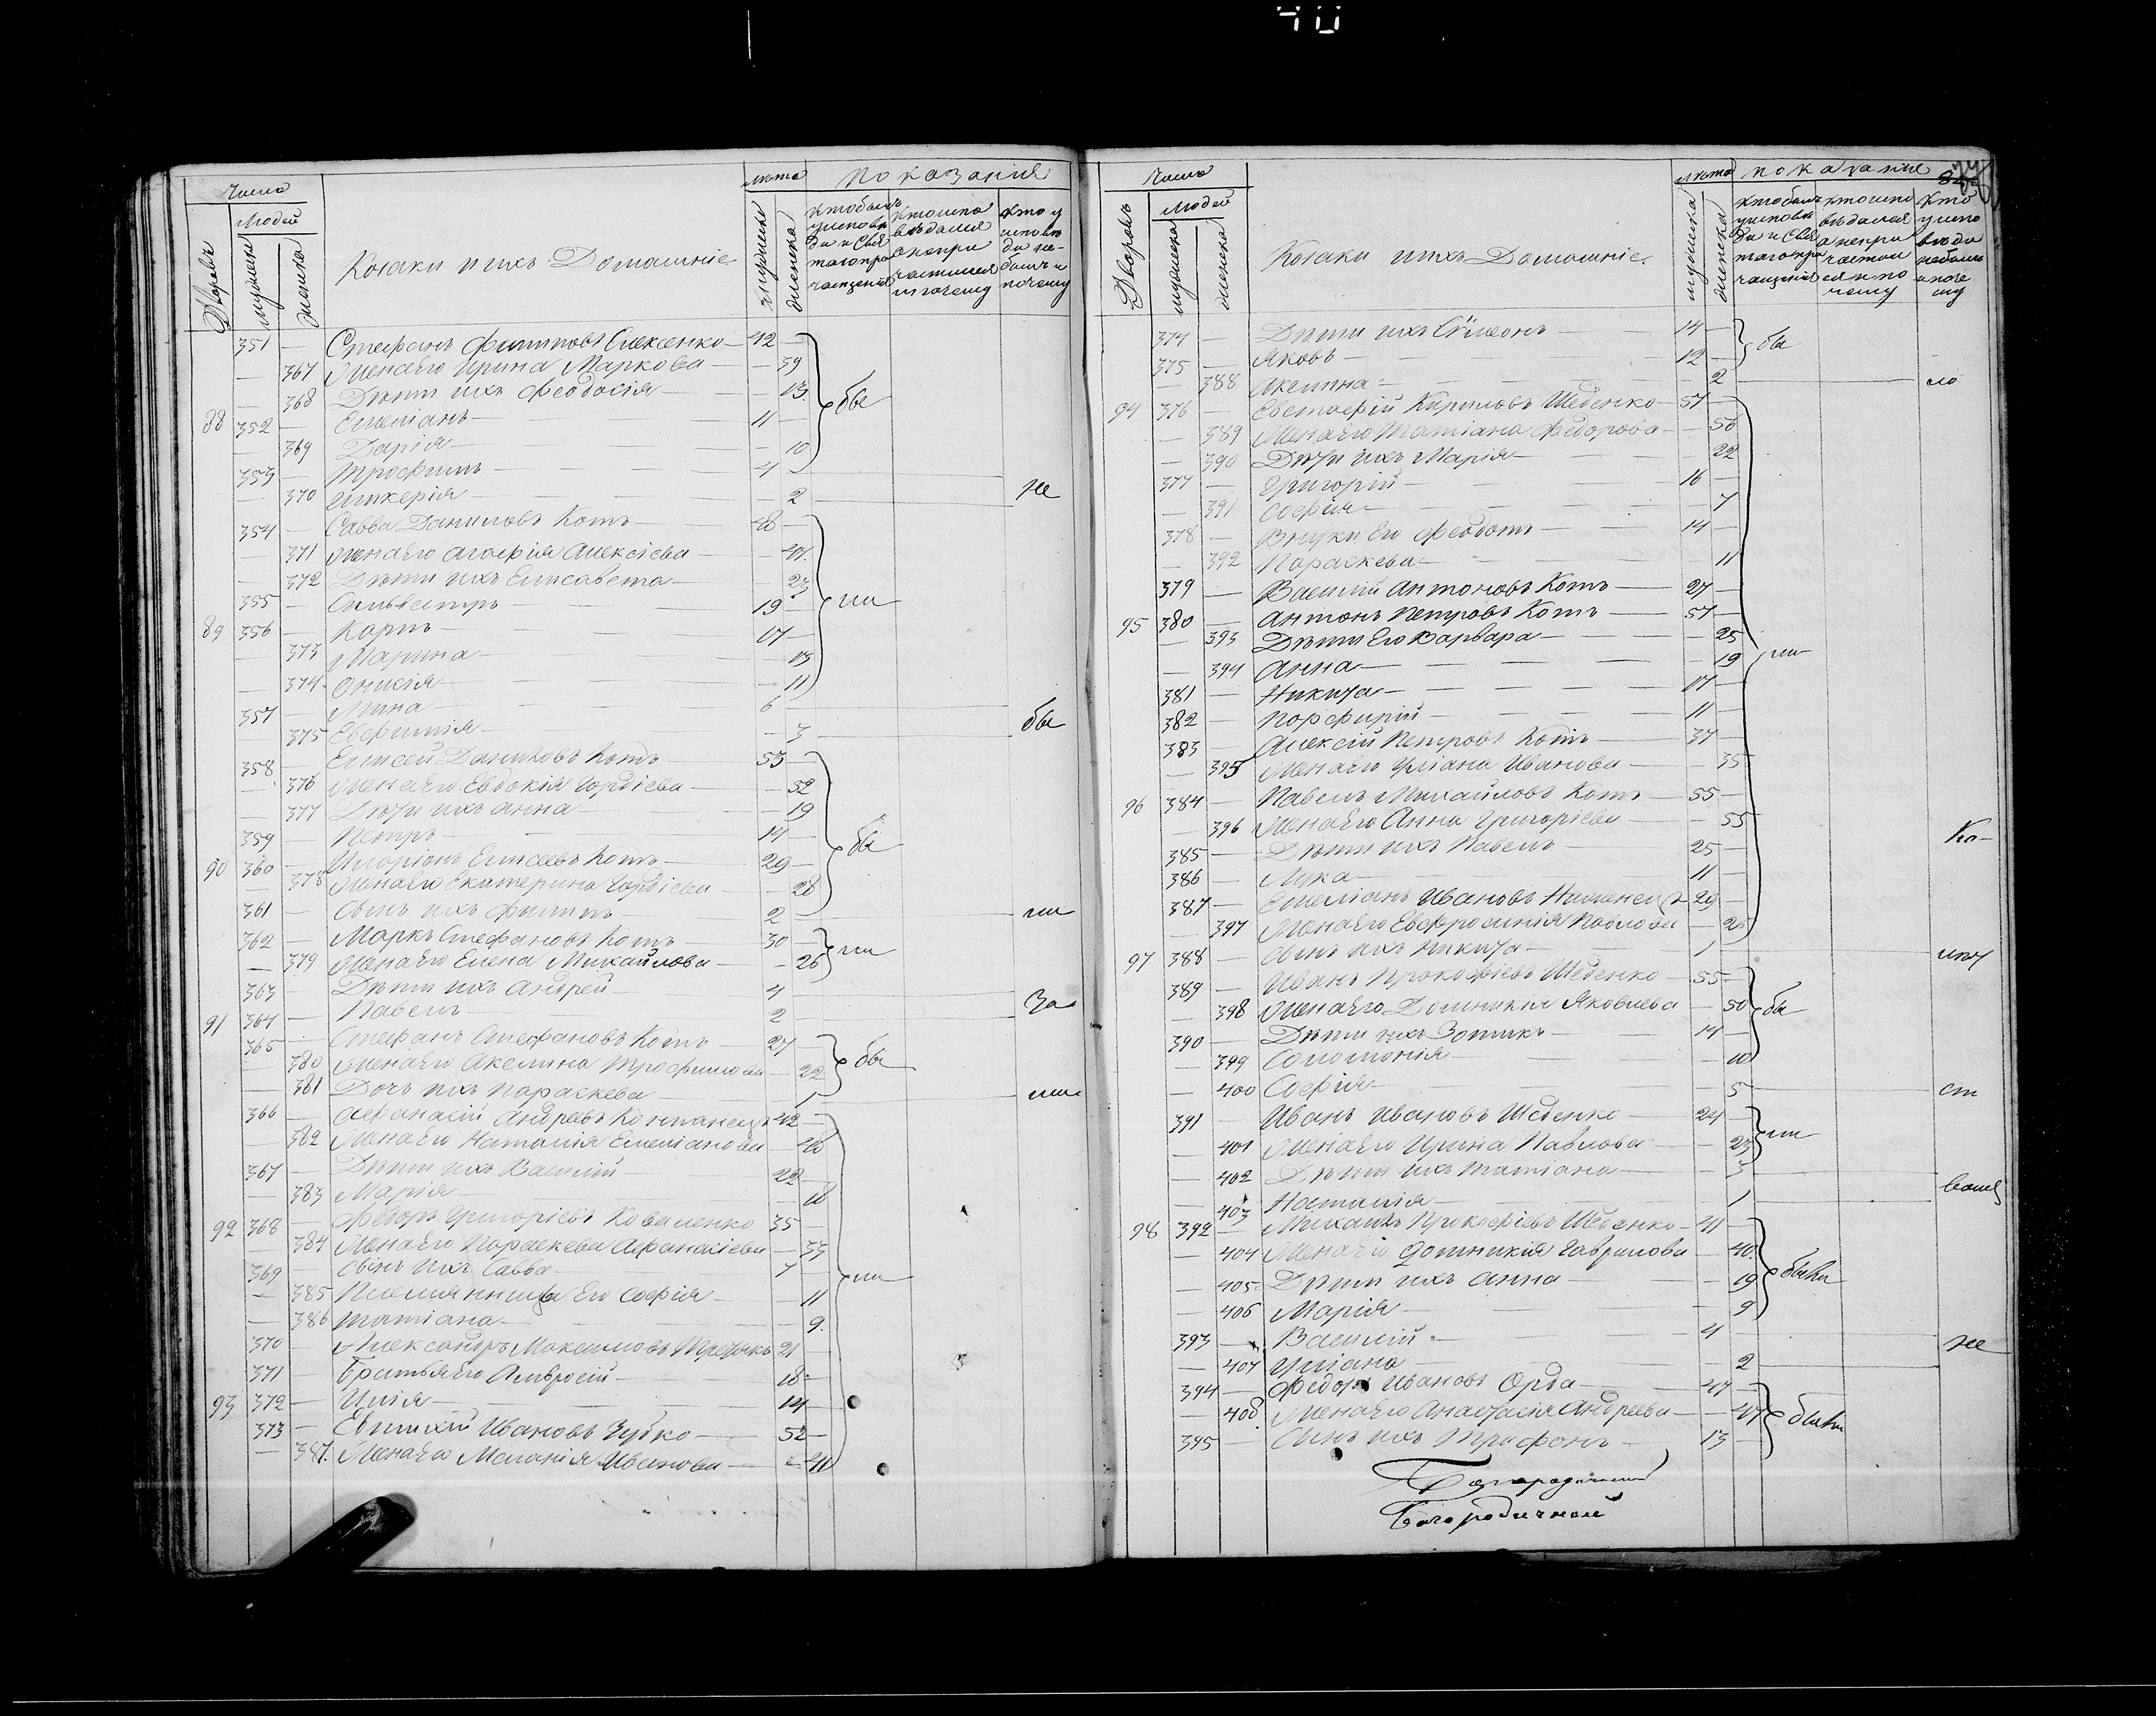 Число
Людей
Дворовъ
мужеска
женска
Козаки и ихъ Домашніе
лѣта
мужеска
женска
показанія
кто былъ
у исповѣ
ди и Свя
таго при
чащенія
кто испо
вѣдался
а не при
частился
и по чему
кто у
исповѣ
ди не
былъ и
почему
351 — Стефанъ Филиповъ Алексенко — 42 —
— 367 Жена его Ирина Маркова — — 39
— 368 Дѣти ихъ Феодосія — — 13
бы
88 352 — Емеліанъ — 11 —
— 369 Дарія — — 10
353 — Трофимъ — 4 —
— 370 Гликерія — — 2
не
354 — Савва Даниловъ Котъ — 48 —
— 371 Жена его Агафія Алексіева — — 47
— 372 Дѣти ихъ Елисавета — — 23
355 — Сильвестръ — 19 —
ли
89 356 — Карпъ — 17 —
— 373 Марина — — 13
— 374 Онисія — — 11
357 — Мина — 6
бы
— 375 Евфимія — — 3
358 — Елисей Даниловъ Котъ — 53 —
— 376 Жена его Евдокія Гордіева — — 52
— 377 Дѣти ихъ Анна — — 19
359 — Петръ — 14 —
бы
90 360 — Иларіонъ Елисеевъ Котъ — 29 —
— 378 Жена его Екатерина Гордіева — — 28
361 — Сынъ ихъ Филипъ — 2
ли
362 — Маркъ Стефановъ Котъ — 30 —
ли
— 379 Жена его Елена Михайлова — — 26
363 — Дѣти ихъ Андрей — 4
За
91 364 — Павелъ — 2
365 — Стефанъ Стефановъ Котъ — 27 —
бы
— 380 Жена его Акелина Трофимова — — 22
— 381 Дочь ихъ Параскева — — 1
366 — Афанасій Андреевъ 42 —
— 382 Жена его Наталія Емеліанова — — 40
367 — Дѣти ихъ Василій — 22 —
— 383 Марія — — 18
92 368 — Федоръ Григоріевъ Коваленко 35 —
— 384 Жена его Параскева Афанасіева — — 33
369 — Сынъ ихъ Савва — 7 —
ли
— 385 Племянница его Софія — — 11
— 386 Татіана — — 9
370 — Александръ Максимовъ 21 —
371 — Братья его Амвросій — 18 —
93 372 — Илія — 14 —
373 — Евтихій Ивановъ Зубко — 52 —
— 387 Жена его Меланія Иванова — — 41
Число
Людей
Дворовъ
мужеска
женска
Козаки и ихъ Домашніе
лѣта
мужеска
женска
показанія
кто былъ
у исповѣ
ди и Свя
таго при
чащенія
кто испо
вѣдался
а не при
частил
ся и по
чему
Кто
у испо
вѣди
небылъ
и поче
му
374 — Дѣти ихъ Сѵмеонъ — 14 —
бы
375 — Яковъ — 12 —
— 388 Акелина — — 2
ло
94 376 — Евстафій Кириловъ Шеденко — 57 —
— 389 Жена его Татіана Федорова — — 56
— 390 Дѣти ихъ Марія — — 22
377 — Григорій — 16 —
— 391 Софія — — 7
378 — Внуки его Феодотъ — 14 —
— 392 Параскева — — 11
379 — Василій Антоновъ Котъ — 27 —
95 380 — Антонъ Петровъ Котъ — 57 —
— 393 Дѣти его Варвара — — 25
ли
— 394 Анна — — 19
381 — Никита — 17 —
382 — Порфирій — 11 —
383 — Алексій Петровъ Котъ — 37 —
— 395 Жена его Уліана Иванова — — 35
96 384 — Павелъ Михайловъ Котъ — 55 —
— 396 Жена его Анна Григоріева — — 55
385 — Дѣти ихъ Павелъ — 25 —
386 — Лука — 11 —
387 — Емеліанъ Ивановъ 29 —
— 397 Жена его Евфросинія Павлова — 26
97 388 — Сынъ ихъ Никита — 1
389 — Иванъ Прокофіевъ Шеденко — 55 —
— 398 Жена его Домникія Яковлева — 50
бы
390 — Дѣти ихъ Зотикъ — 14 —
— 399 Соломонія — — 10
— 400 Софія — — 5
ст
391 — Иванъ Ивановъ Шеденко — 24 —
ли
— 401 Жена его Ирина Павлова — — 23
— 402 Дѣти ихъ Татіана — — 3
— 403 Наталія — — 1
98 392 — Михаилъ Прокофіевъ Шеденко — 41 —
— 404 Жена его Домникія Гаврилова — 40
— 405 Дѣти ихъ Анна — — 19
были
— 406 Марія — — 9
393 — Василій — 4
не
— 407 Уліана — — 2
394 — Федоръ Ивановъ Орда — 47 —
— 408 Жена его Анастасія Андреева — — 47
были
395 — Сынъ ихъ Трифонъ — 13 —
Богородичной